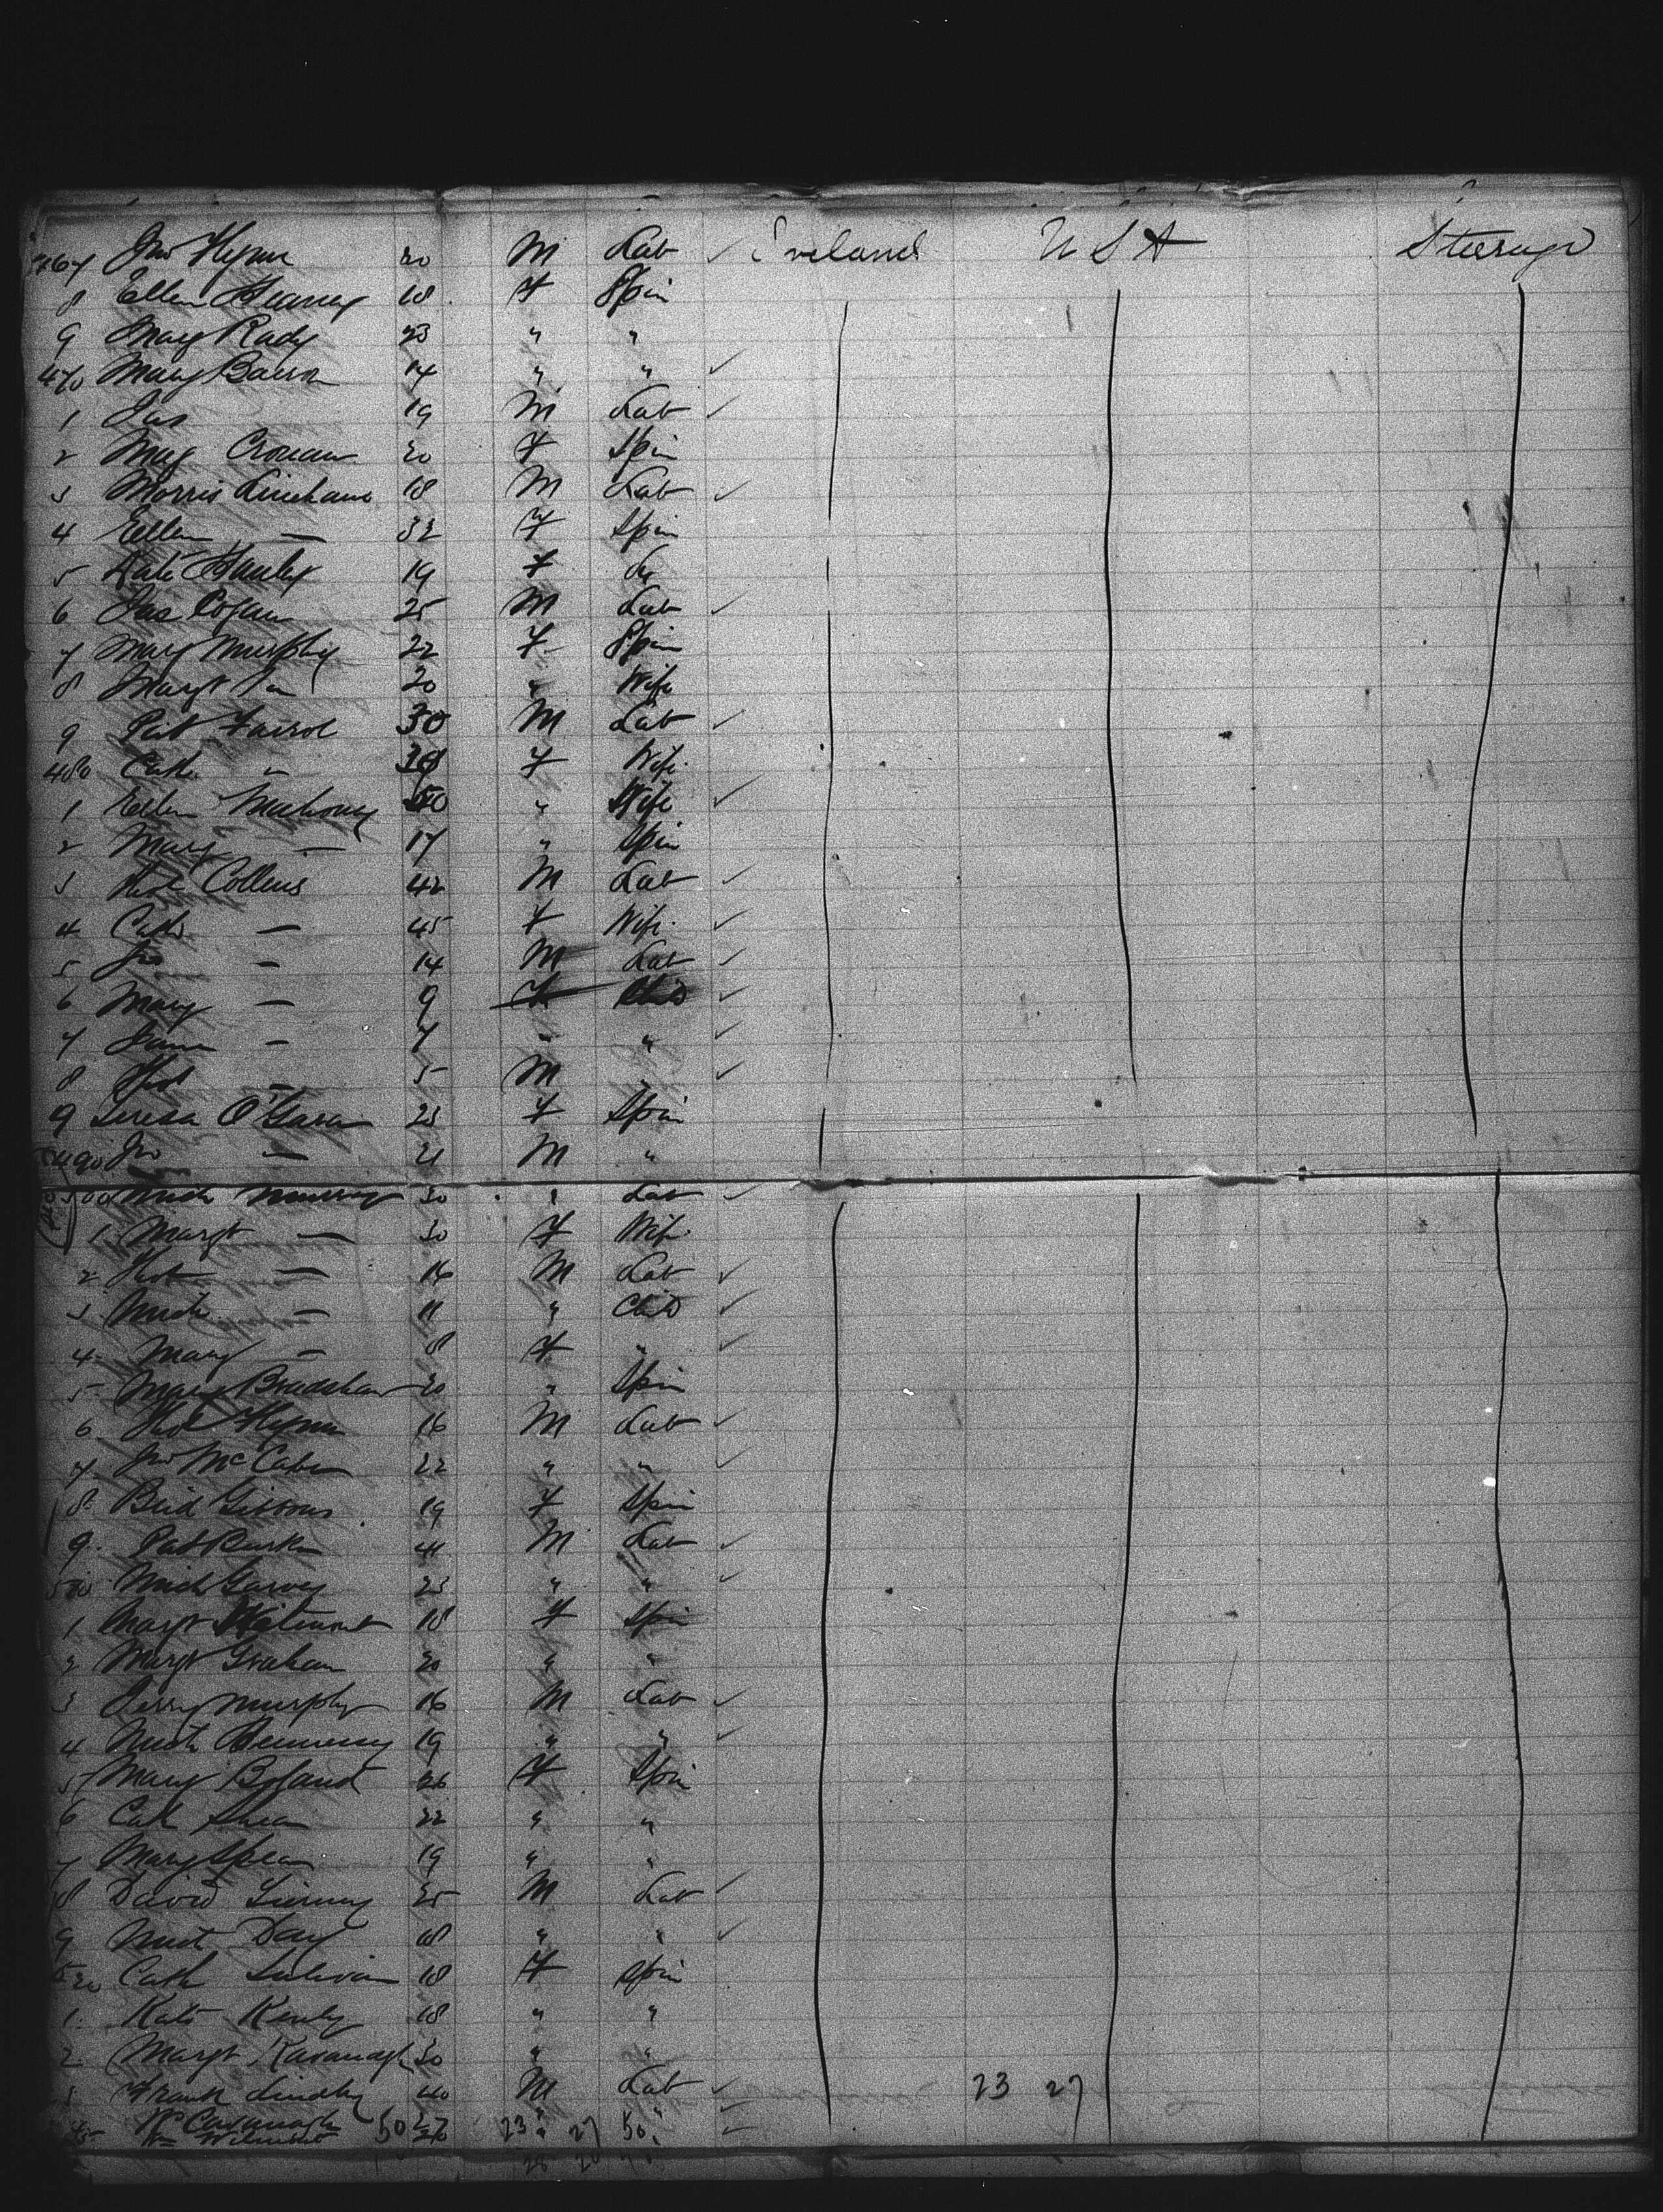 467 Jno Flynn 20 M Lab ✓ Ireland U S A Steerage
8 Ellen 18 F Spin
9 Mary Rady 23 " "
470 Mary Barron 14 " " ✓
1 Jas 19 M Lab ✓
2 Mag Cronan 20 F Spin
3 Morris Linehane 18 M Lab ✓
4 Ellen — 32 F Spin
5 Kate Hanley 19 F Do
6 Jas Cogan 25 M Lab ✓
7 Mary Murphy 22 F Spin
8 Margt 20 " Wife
9 Pat Farrol 30 M Lab ✓
480 Cath " 30 F Wife
1 Ellen Mahoney 50 " Wife ✓
2 Mary — 17 " Spin
3 Thos Collins 42 M Lab ✓
4 Cath — 45 F Wife ✓
5 Jno — 14 M Lab ✓
6 Mary — 9 F Child ✓
7 — 7 " " ✓
8 Thos — 5 M " ✓
9 Teresa O'Gara 23 F Spin
490 Jno — 21 M "
500 Mich Murray 30 " Lab ✓
1 Margt — 30 F Wife
2 Thos — 14 M Lab ✓
3 Mich — 11 " Child ✓
4 Mary — 8 F " ✓
5 Mary Bradshaw 20 " Spin
6 Thos Flynn 16 M Lab ✓
7 Jno McCabe 22 " " ✓
8 Brid Gibbons 19 F Spin
9 Pat Burke 41 M Lab ✓
510 Mich Garvey 23 " " ✓
1 Margt 18 F Spin
2 Margt Graham 20 " "
3 Jerry Murphy 16 M Lab ✓
4 Mich Hennessy 19 " " ✓
5 Mary Boland 26 F Spin
6 Cath Shea 22 " "
7 Mary Shea 19 " "
8 David Tierney 25 M Lab ✓
9 Mich Day 18 " " ✓
520 Cath Sulivan 18 F Spin
1 Kate Kenly 18 " "
2 Margt Kavanagh 30 " "
3 Frank Lindley 40 M Lab ✓ 23 27
Cavanagh 50 27 23 " 27 50 "